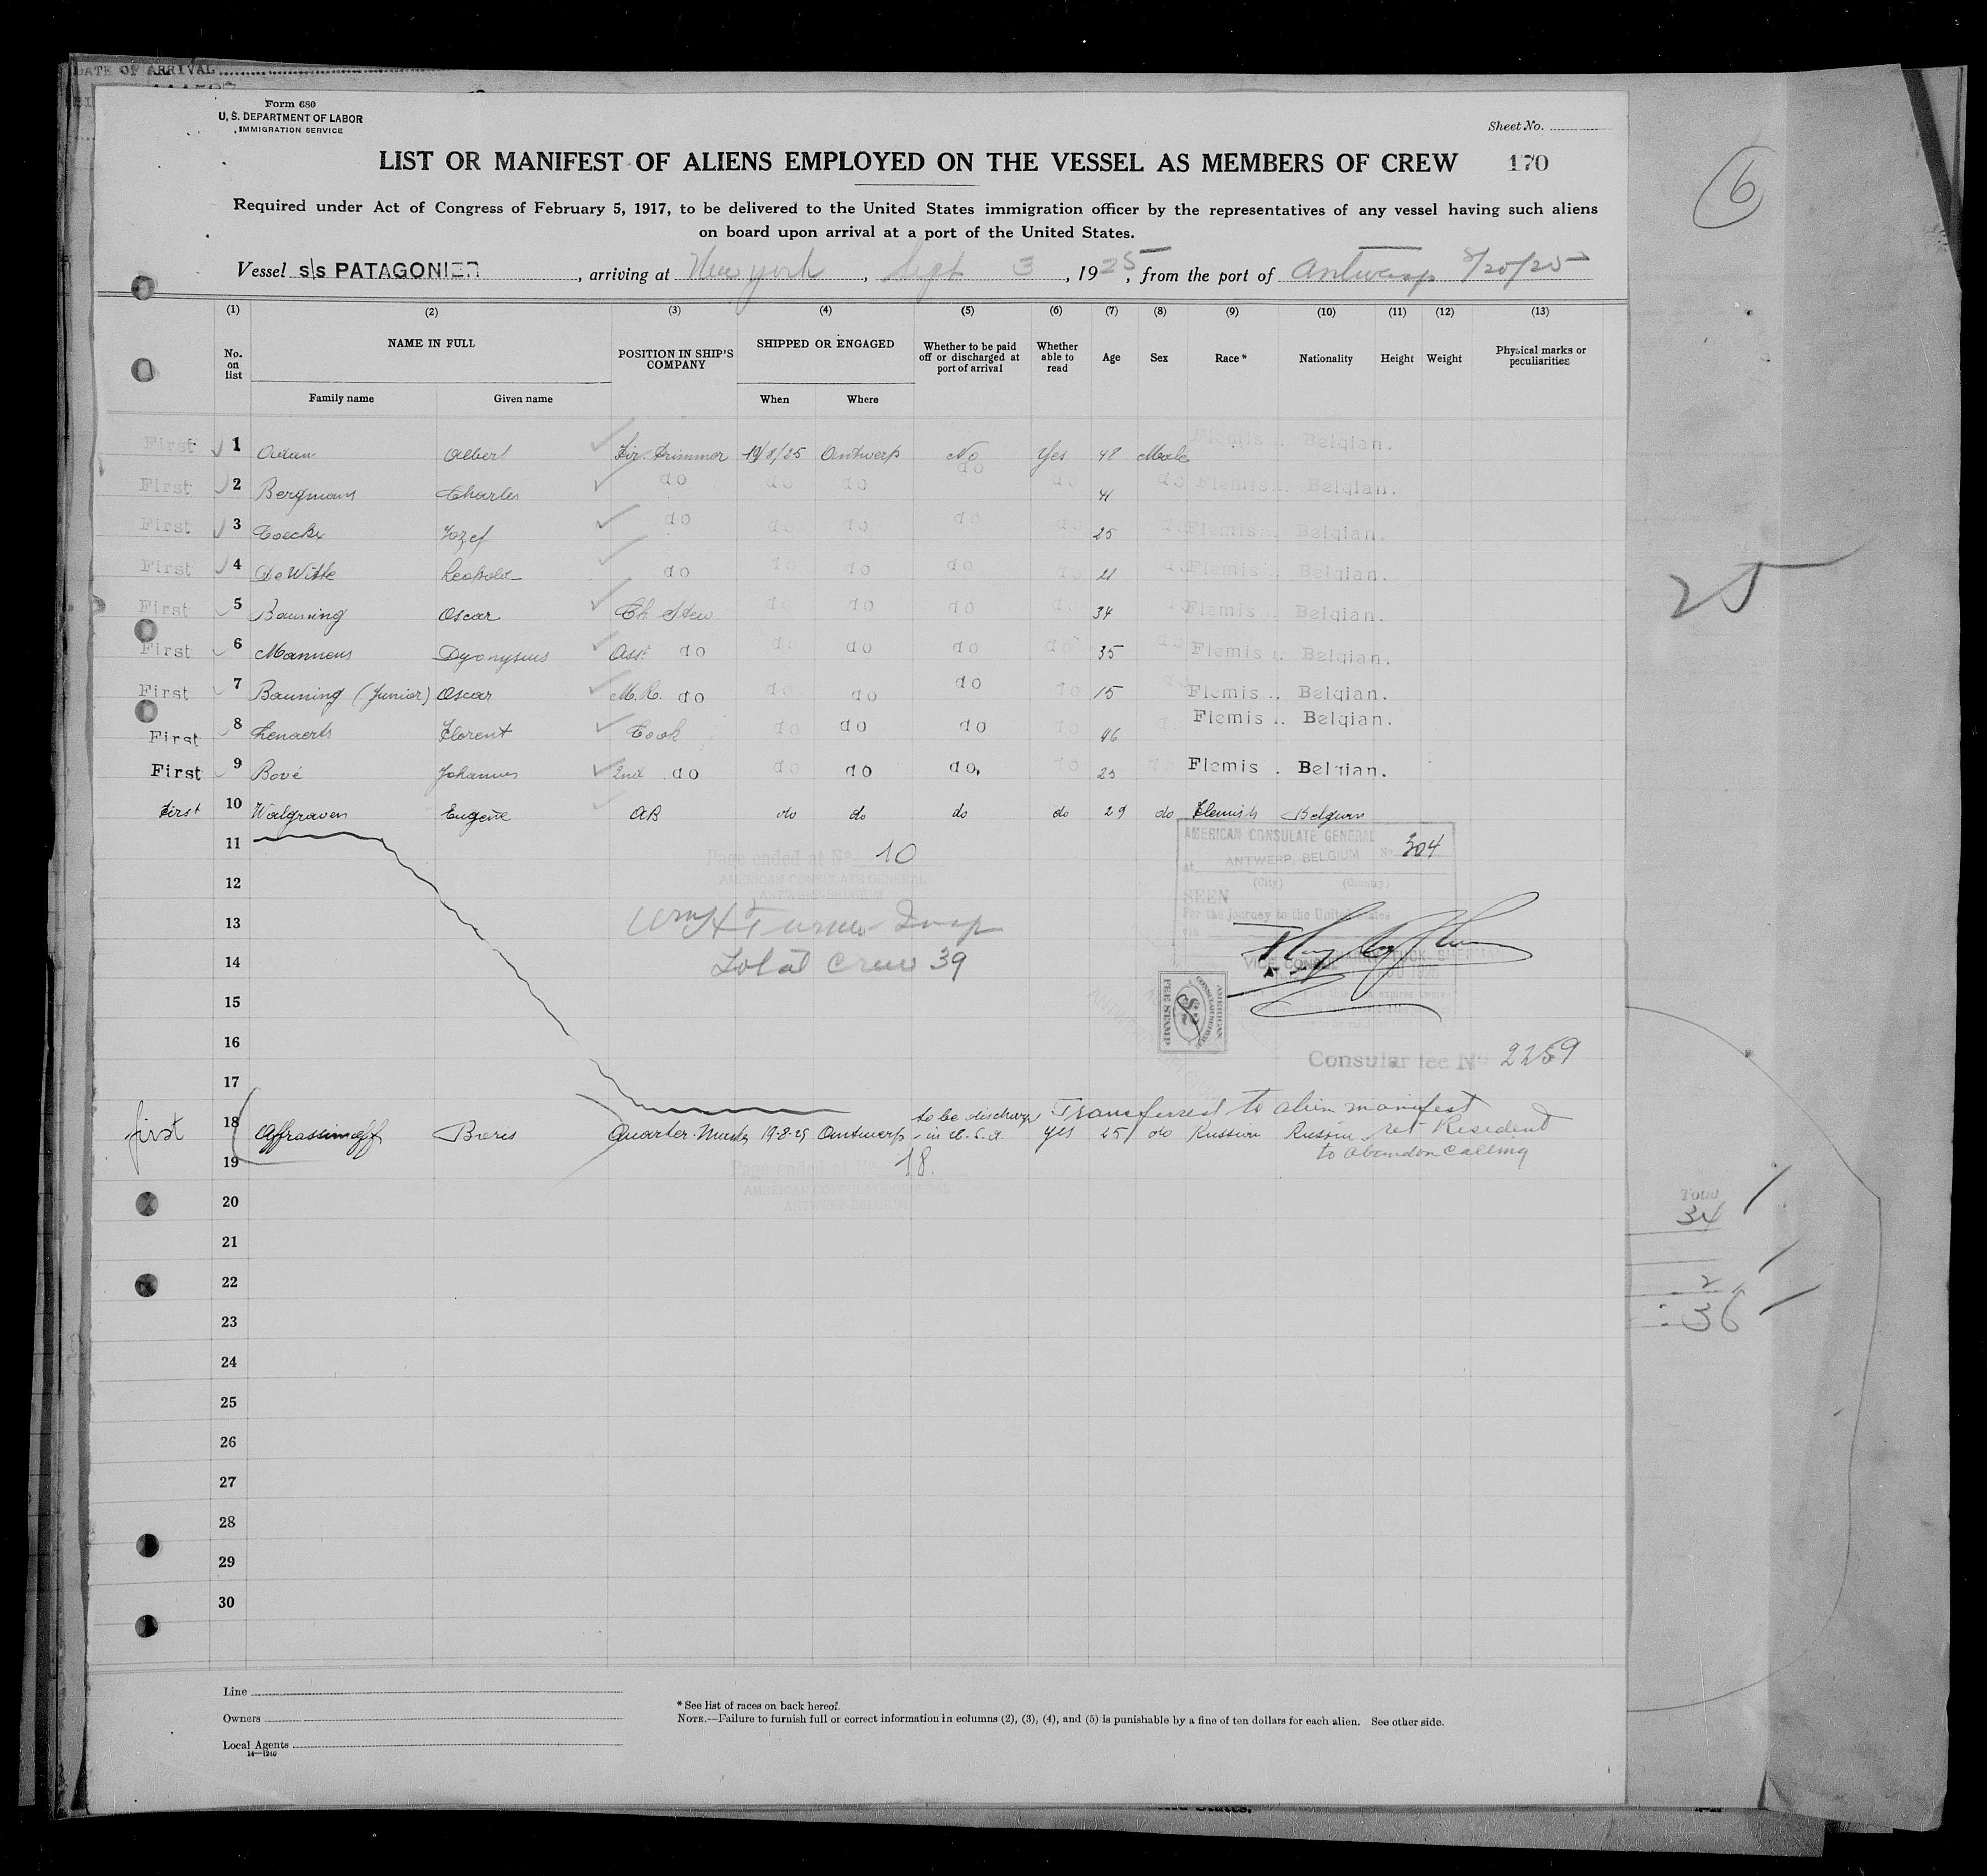 DATE OF ARRIVAL
Form 680
U. S. DEPARTMENT OF LABOR
IMMIGRATION SERVICE
Sheet No.
LIST OR MANIFEST OF ALIENS EMPLOYED ON THE VESSEL AS MEMBERS OF CREW 170
6
Required under Act of Congress of February 5, 1917, to be delivered to the United States immigration officer by the representatives of any vessel having such aliens
on board upon arrival at a port of the United States.
Vessel s/s PATAGONIER, arriving at New York, Sept 3, 1925, from the port of Antwerp 8/20/25
(1) (2) (3) (4) (5) (6) (7) (8) (9) (10) (11) (12) (13)
No. on list NAME IN FULL Family name Given name POSITION IN SHIP'S COMPANY SHIPPED OR ENGAGED When Where Whether to be paid off or discharged at port of arrival Whether able to read Age Sex Race* Nationality Height Weight Physical marks or peculiarities
First 1 Adam Albert Fir. Trimmer 19/8/25 Antwerp No Yes 48 Male Flemis. Belgian.
First 2 Bergmans Charles do do do do do 41 do Flemis. Belgian.
First 3 Coeckx Jozef do do do do do 25 do Flemis. Belgian.
First 4 De Witte Leopold do do do do do 21 do Flemis. Belgian.
First 5 Bauning Oscar Ch. Stew. do do do do 34 do Flemis. Belgian.
First 6 Mannens Dyonysius Asst. do do do do do 35 do Flemis. Belgian.
First 7 Bauning (Junior) Oscar M.R. do do do do do 15 do Flemis. Belgian.
First 8 Lenaerts Florent Cook do do do do 46 do Flemis. Belgian.
First 9 Bové Johannes 2nd do do do do, do 25 do Flemis. Belgian.
First 10 Walgraven Eugène AB do do do do 29 do Flemish Belgian
11
Page ended at No. 10
AMERICAN CONSULATE GENERAL
ANTWERP-BELGIUM
AMERICAN CONSULATE GENERAL
At ANTWERP, BELGIUM No 304
(City) (Country)
SEEN
For the journey to the United States
via
VICE CONSUL
12
13
Wm H Turner Insp
14
Total Crew 39
15
AMERICAN CONSULAR SERVICE $2 FEE STAMP
16
Consular fee No. 2259
17
Transferred to alien manifest
first 18 Affrassimoff Boris Quarter-Master 19-8-25 Antwerp to be discharged in U.S.A. Yes 25 do Russian Russia ret Resident
to abandon calling
19
Page ended at No. 18.
AMERICAN CONSULATE GENERAL
ANTWERP-BELGIUM
20
21
22
23
24
25
26
27
28
29
30
25
Total
34
2
36
Line
Owners
Local Agents
14—1240
* See list of races on back hereof.
NOTE.—Failure to furnish full or correct information in columns (2), (3), (4), and (5) is punishable by a fine of ten dollars for each alien. See other side.